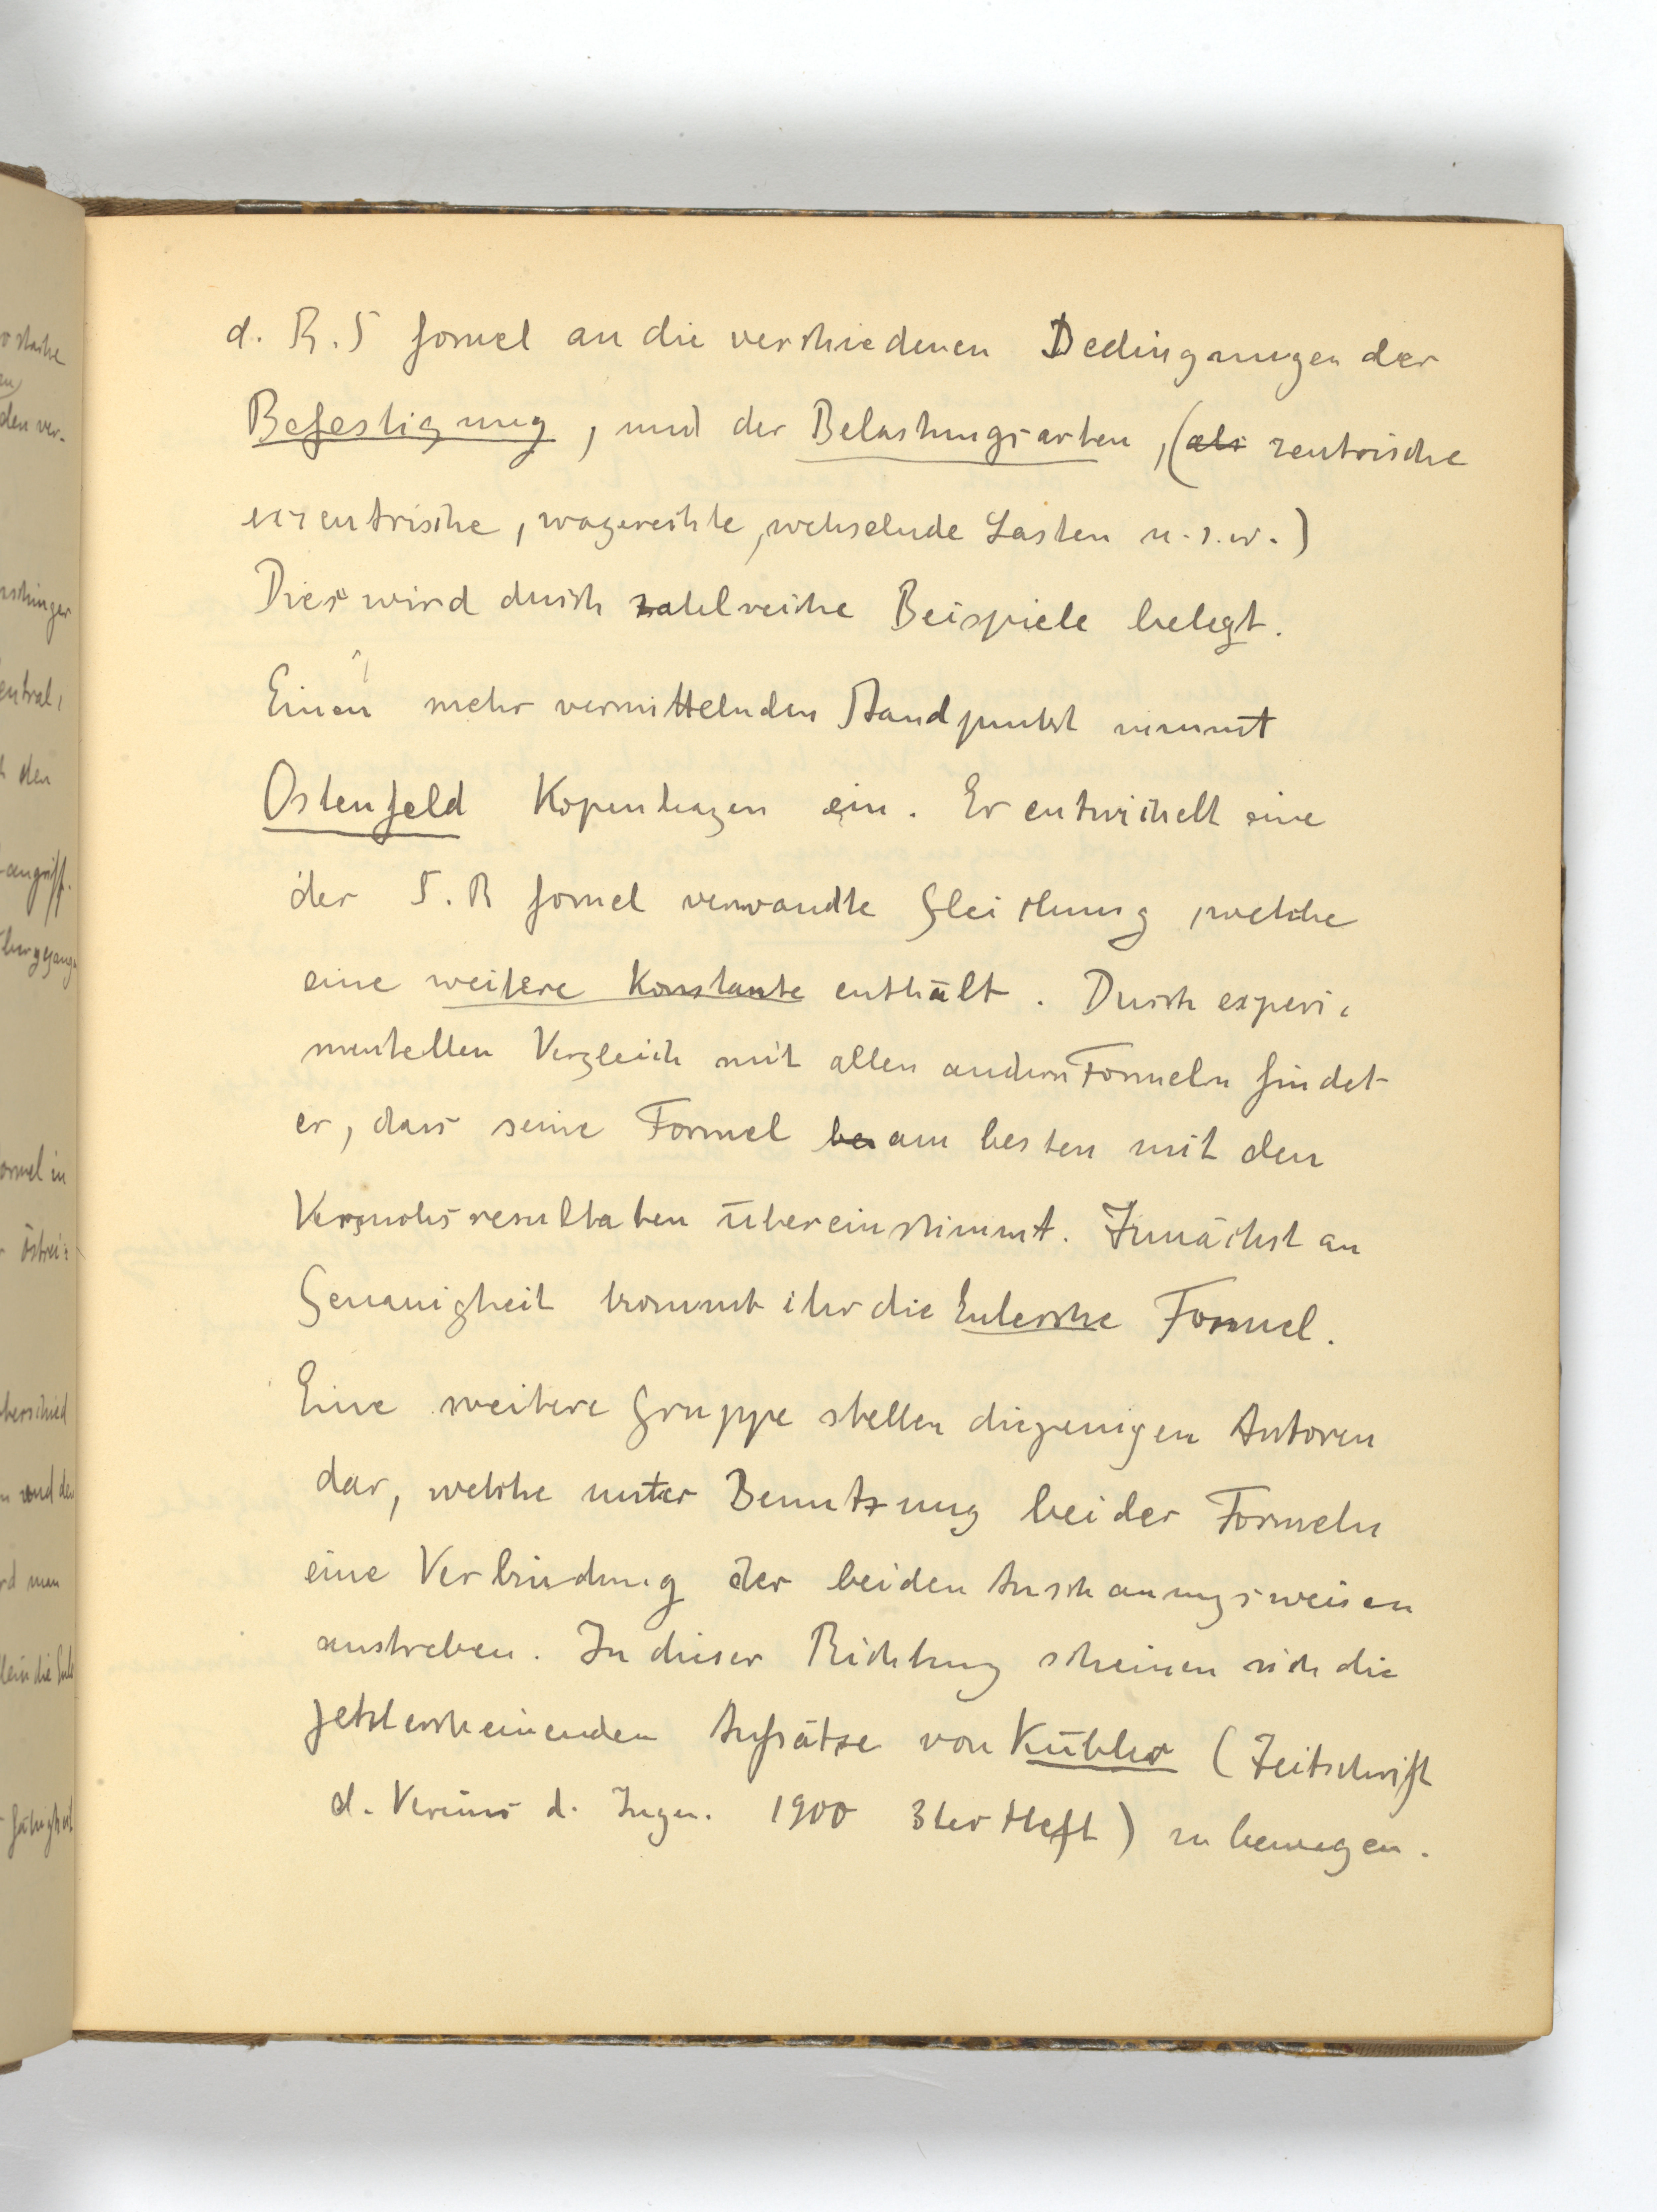 d. R. S formel an die verschiedenen Bedingungen der
Befestigung, und der Belastungsarten, (als zentrische
exzentrische, wagerechte, wechselnde Lasten u.s.w.)
Dies wird durch zahlreiche Beispiele belegt.
Einen mehr vermittelnden Standpunkt nimmt
Ostenfeld Kopenhagen ein. Er entwickelt eine
der S. R formel verwandte Gleichung, welche
eine weitere Konstante enthält. Durch experi-
mentellen Vergleich mit allen andern Formeln findet
er, dass seine Formel be am besten mit den
Versuchsresultaten übereinstimmt. Zunächst an
Genauigkeit kommt ihr die Eulersche Formel.
Eine weitere Gruppe stellen diejenigen Autoren
dar, welche unter Benutzung beider Formeln
eine Verbindung der beiden Anschauungsweisen
anstreben. In dieser Richtung scheinen sich die
jetzt erscheinenden Aufsätze von Kübler (Zeitschrift
d. Vereins d. Ingen. 1900 3ter Heft) zu bewegen.